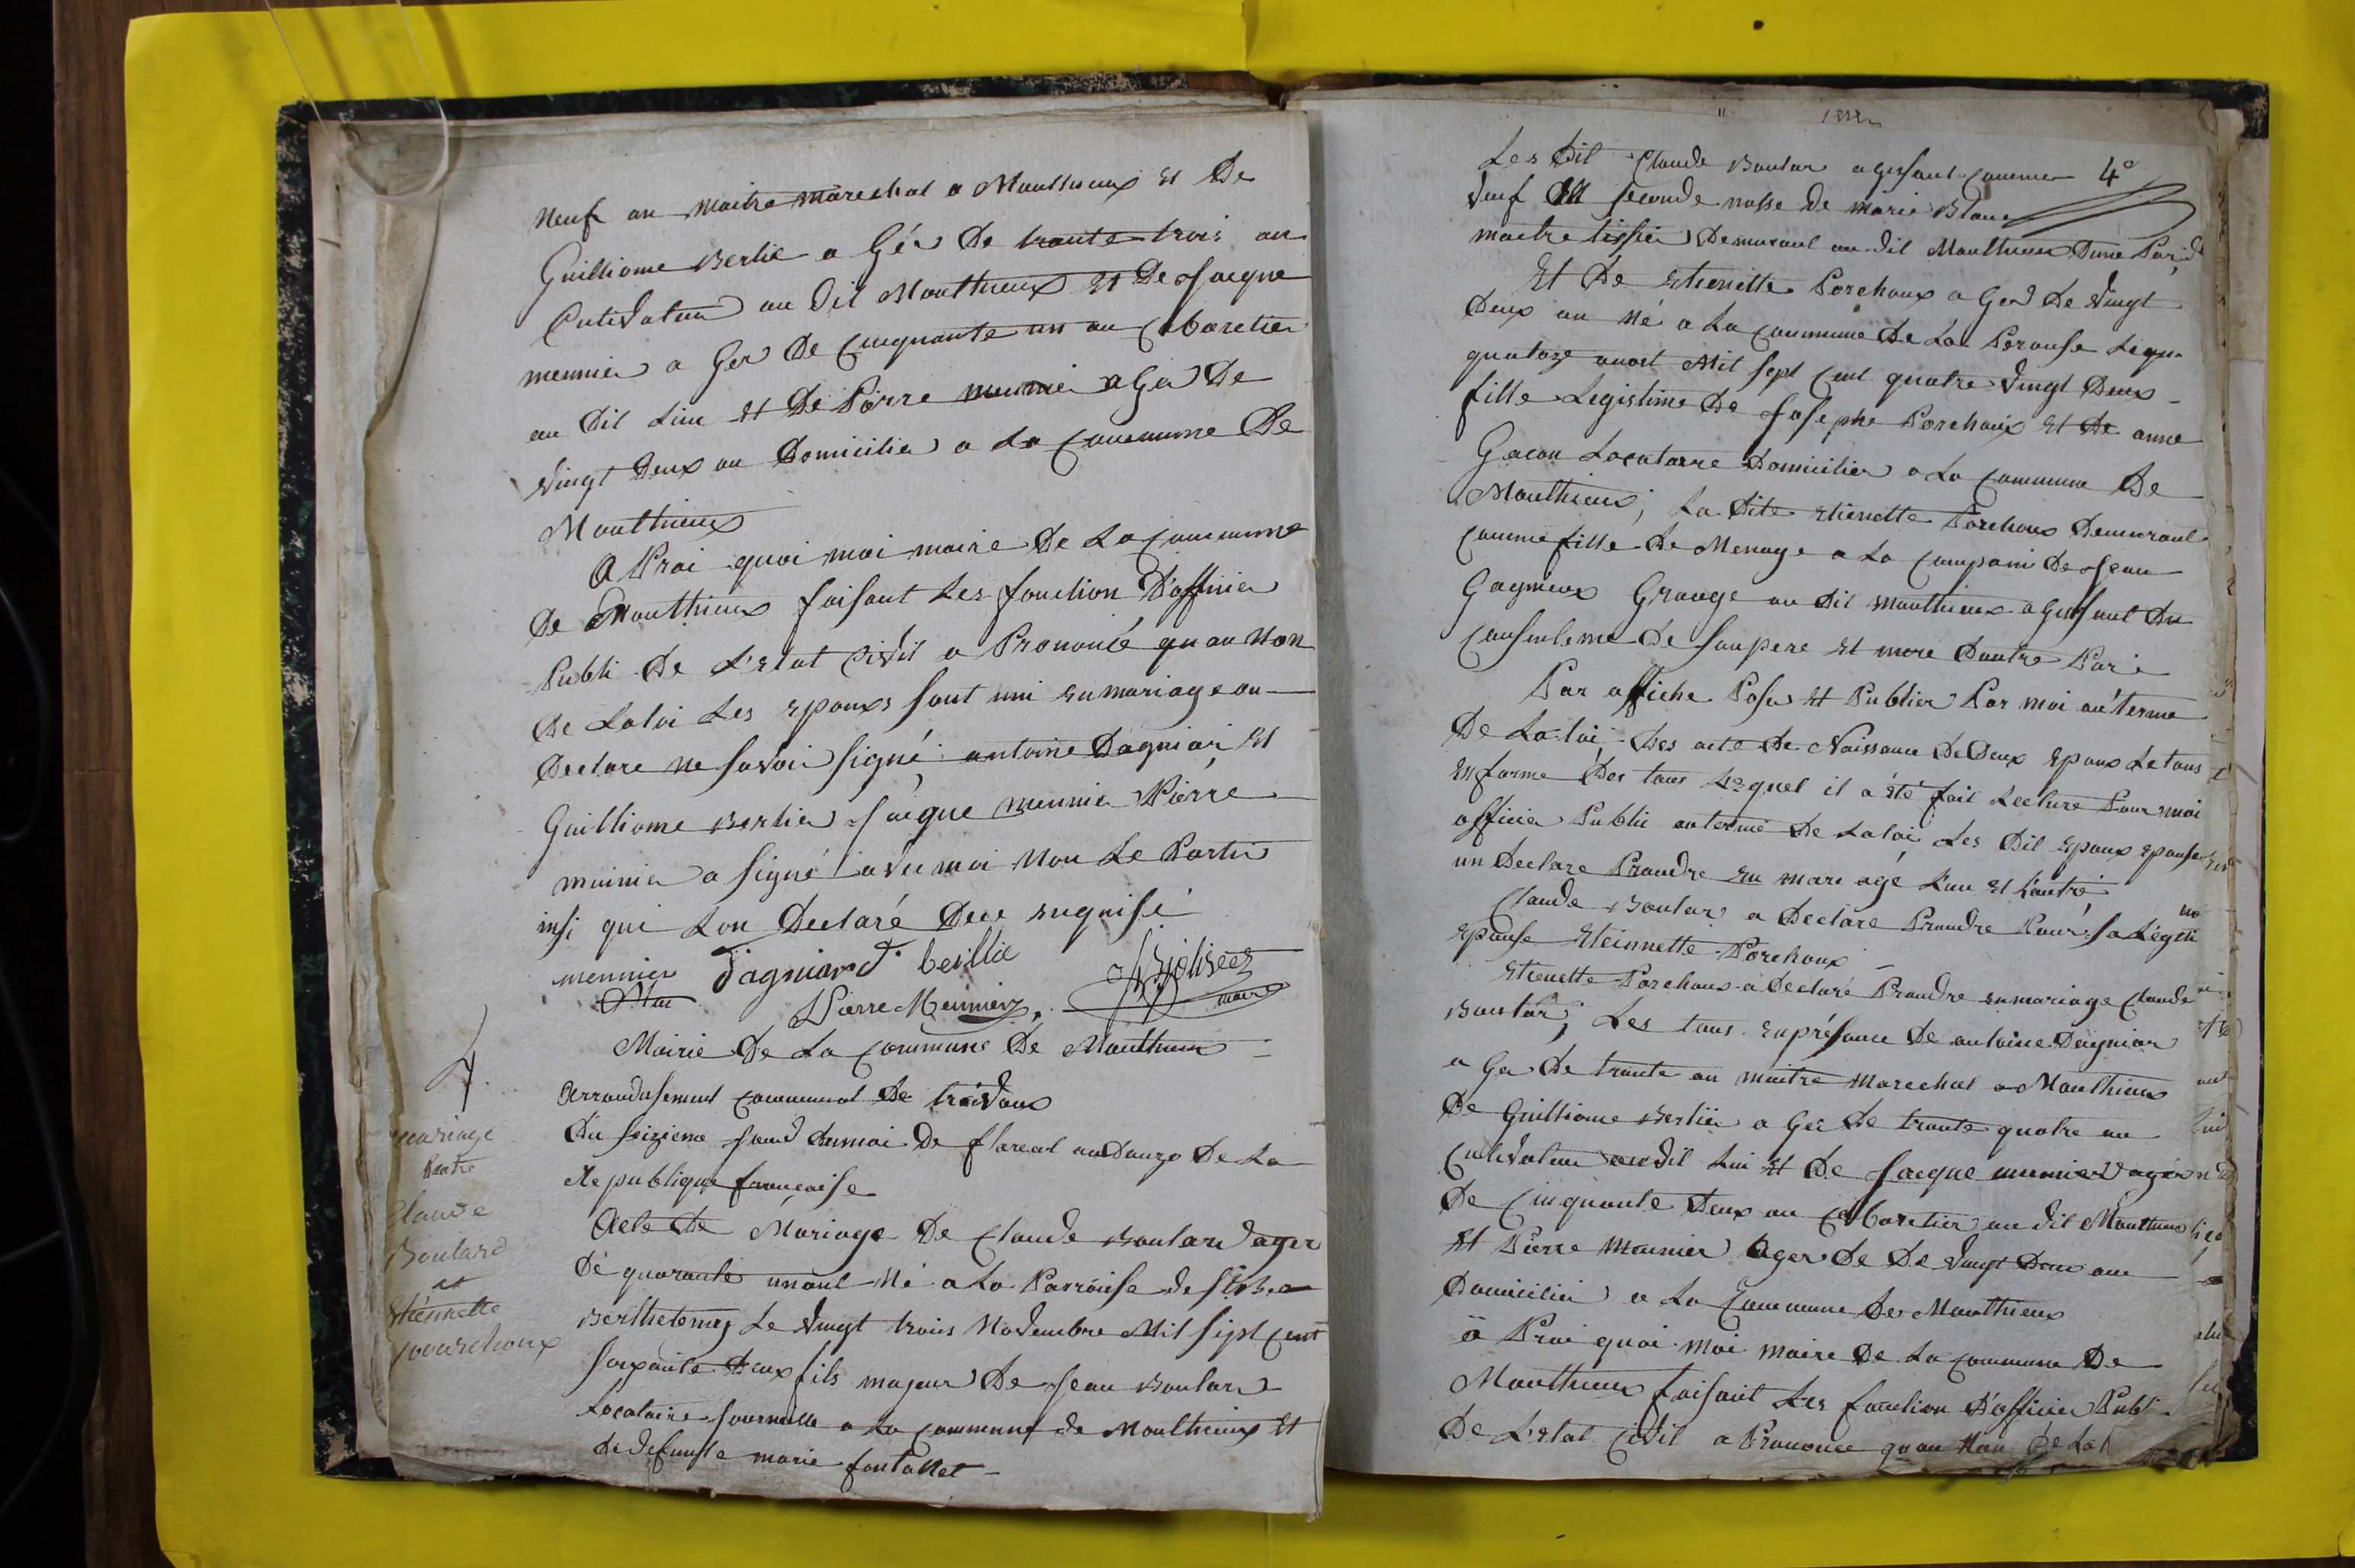 neuf an maitre marechal a Monthieux et De
Guilliome Berlie a Gér De trante trois an
Cultivateur au dit Monthieux et De Jacque
meunier a Ger De cinquante un an Cabaretier
au dit Lieu et De Piérre meunier a Ger De
vingt Deux an Domicilier a La Commune De
Monthieux
A Prai quoi moi maire De La Commune
De Monthieux faisant Les fonction D'officier
Publi De L'Etat Civil a Prononcé qu au Non
De La loi Les Epouxs sont uni en mariage on
Declare ne savoir signé antoine Dagniar, Et
Guilliome Berlier Jacque meunier Piérre
meunier a signé avec moi Non Le Partie
insi qui Lon Declaré Dece enquise
meunier Dagniard berllie
Pierre Meunier maire
Mairie De La Commune De Monthieux
Arrondisement Communal De trévoux
Du seizieme Jour Du moi De floreal an Douze De La
Republique francaise
mariage
entre
Claude
Boulard
et
Etiennette
pourchoux
Acte De Mariage De Claude Boulard ager
Dé quarante un ant Né a La Parroise de St
Berthelemy Le vingt trois Novembre Mil sept cent
soixante Deux fils majeur De Jean Boulard
Locataire Journalle a La Commune de Monthieux Et
de defunte marie fontanet
Les Dit Claude Boular agissant comme 4e
veuf En seconde nosse de marie Blanc
maitre tissier Demurant au dit Monthieux D'une Par
Et De Etienette Porchoux a Ger De vingt
Deux an Né a La Commune De La Pérouse Le
quatoze avost Mil sept cent quatre vingt Deux
fille Legistime De Josephe Porchoux Et De anne
Gacon Locataire Domicilier a La Commune De
Monthieux; La Dite Etienette Porchoux Demurant
comme fille De Menage a La Compani De Jean
Gagnieux Grange au dit Monthieux agissant Du
Consentement De son pere Et mere D'autre Par
Par affiche Posér Et Publier Par moi au terme
De La loi, Des acte De Naissance De Deux Epoux Le tous
En forme Des tous Lequel il a été fait Lecture Par moi
officier Public au terme De La loi Les Dit Epoux epouse
un Declare Prandre En mari agé L'un Et L'autre;
Claude Boular a Declare Prandre Pour sa Légiti
Epouse Eteinnette Porchoux
Etienette Porchoux a Declaré Prandre en mariage Claude
Boular; Les tous En présance De antoine Dagniar
a Ger De trante an maitre Marechal a Monthieux
De Guilliome Berlier a Ger De trante quatre an
Cultivateur au dit Lui Et De Jacque meunier ager
De Cinquante Deux an Cabaretier au dit Monthieux
Et Pierre Meunier Ager De De vingt Deux an
Domicilier a La Commune De Monthieux
a Prai quoi moi maire De La Commune De
Monthieux faisant Les fonction D'officier Publi
De L'Etat Civil a Prononce qu au Non De La